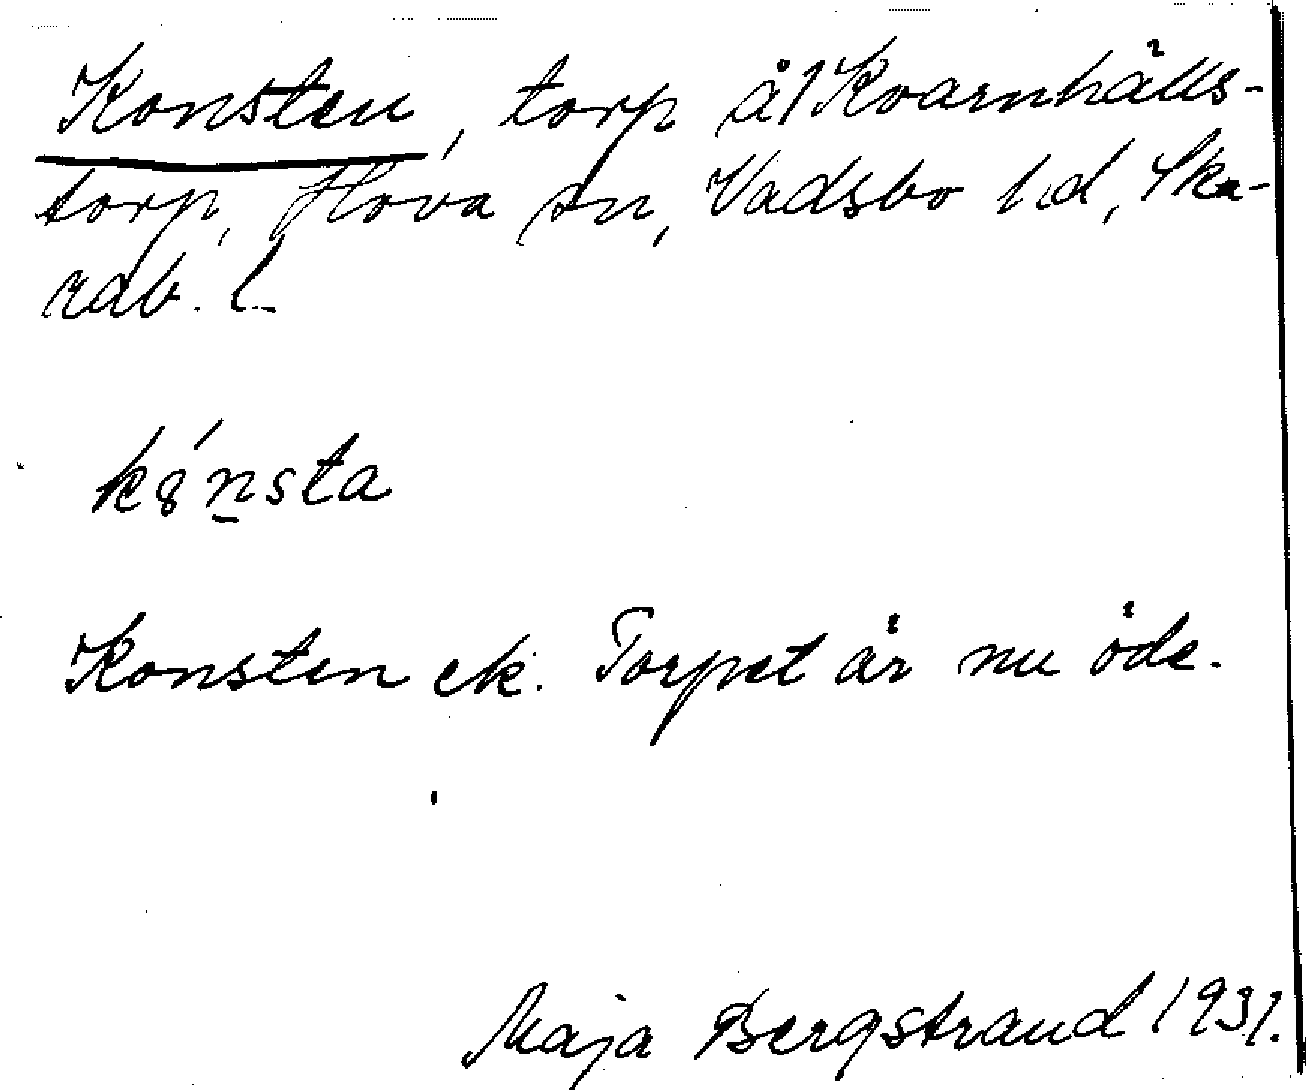 Konsten, torp å/Kvarnhälls-
torp, Hova sn, Vadsbo hd, Ska-
rab. l.
kǿn̲sta
Konsten ek. Torpet är nu öde.
Maja Bergstrand 1931.